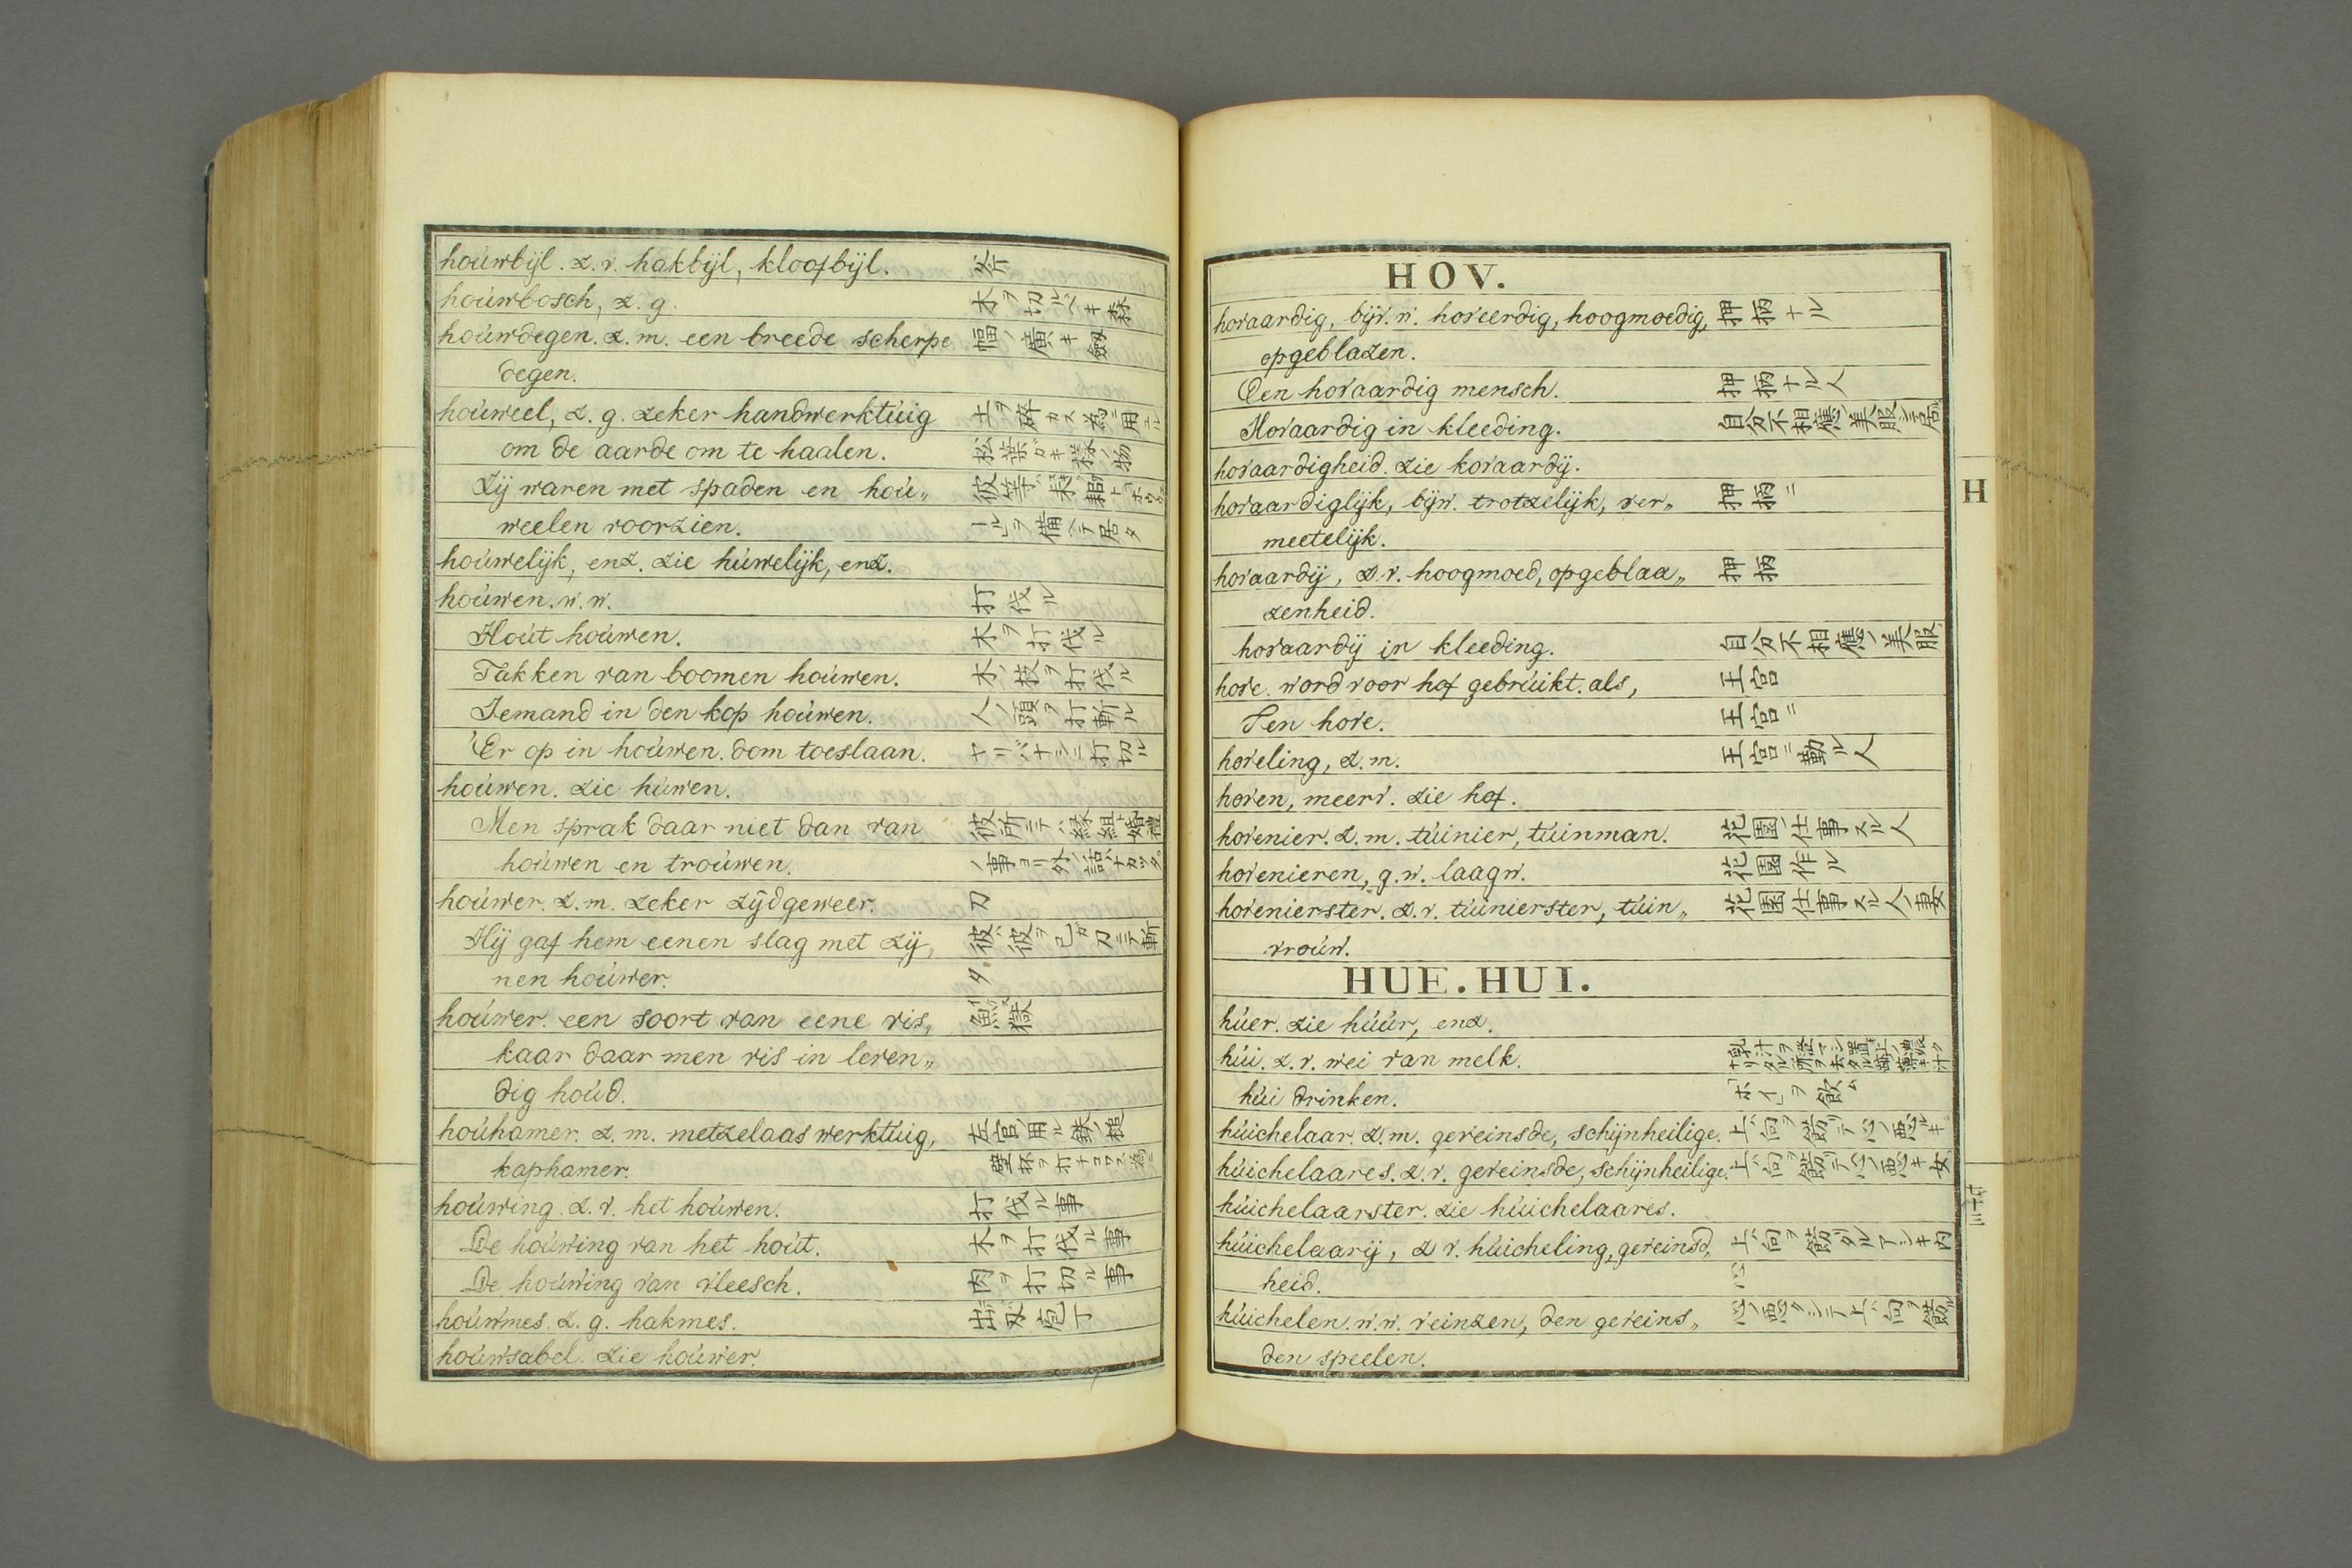 houwbijl. z. v. hakbijl, kloofbijl. 斧
houwbosch, z. g. 木ヲ切ルベキ森
houwdegen. z. m. een breede scherpe 幅ノ廣キ劔
degen.
houweel, z. g. zeker handwerktuig 土ヲ砕カス為ニ用ユル
om de aarde om te haalen. 松葉ロキ様ノ物
Zij waren met spaden en hou„ 彼等ハ
weelen voorzien. ールヲ備ヘテ居タ
houwelijk, enz. zie huwelijk, enz.
houwen. w. w. 打伐ル
Hout houwen. 木ヲ打伐ル
Takken van boomen houwen. 木ノ枝ヲ打伐ル
Iemand in den kop houwen. 人ノ頭ヲ打斬ル
Er op in houwen. dom toeslaan. ヤリバナシニ打切ル
houwen. zie huwen.
Men sprak daar niet dan van 彼所ニテハ縁組婚禮
houwen en trouwen. ノ事ヨリ外ノ話ハナカツタ
houwer. z. m. zeker zijdgeweer. 刀
Hij gaf hem eenen slag met zij„ 彼ハ彼ヲ己ガ刀ニテ斬
nen houwer. タ
houwer. een soort van eene vis„
kaar daar men vis in leven„
dig houd.
houhamer. z. m. metzelaas werktuig, 左官ノ用ル鉄ノ槌
kaphamer.
houwing. z. v. het houwen. 打伐ル事
De houwing van het hout. 木ヲ打伐ル事
De houwing van vleesch. 肉ヲ打切ル事
houwmes. z. g. hakmes. 出刄庖丁
houwsabel. zie houwer.
HOV.
hovaardig, bijv. w. hoveerdig, hoogmoedig, 押柄ナル
opgeblazen.
Een hovaardig mensch. 押柄ナル人
Hovaardig in kleeding. 自分不相應ノ美服シテ居ル
hovaardigheid. zie hovaardij.
hovaardiglijk, bijw. trotzelijk, ver„ 押柄ニ
meetelijk.
hovaardij, z. v. hoogmoed, opgeblaa„ 押柄
zenheid.
hovaardij in kleeding. 自分不相應ノ美服
hove. word voor hof gebruikt. als, 王宮
Ten hove. 王宮ニ
hoveling, z. m. 王宮ニ勤ル人
hoven, meerv. zie hof.
hovenier. z. m. tuinier, tuinman. 花園ノ仕事スル人
hovenieren, g. w. laagw. 花園作ル
hovenierster. z. v. tuinierster, tuin„ 花園仕事スル人ノ妻
vrouw.
HUE. HUI.
huer. zie huur, enz.
hui. z. v. wei van melk.
hui drinken. 「ホイ」ヲ飲ム
huichelaar. z. m. geveinsde, schijnheilige. 上ハ向ヲ餝リテ心ノ悪ルキ
huichelaares. z. v. geveinsde, schijnheilige. 上ハ向ヲ餝リテ心ノ悪キ女
huichelaarster. zie huichelaares.
huichelaarij, z v. huicheling, geveinsd„ 上ハ向ヲ餝リタルアシキ内
heid. 心
huichelen. w. w. veinzen, den geveins„ 心ノ悪クシテ上ハ向ヲ餝ル
den speelen.
H